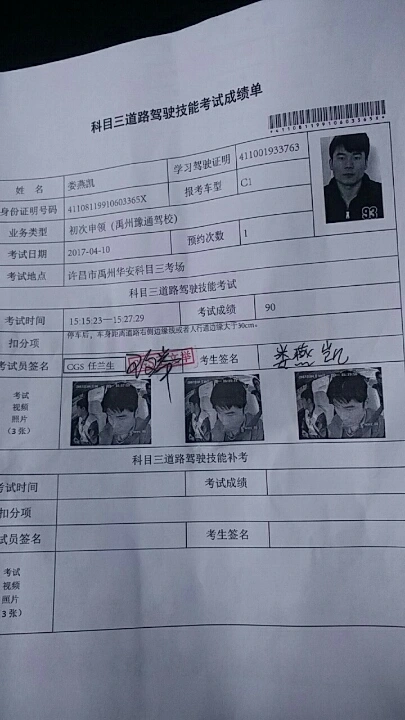 科目三道路驾驶技能考试成绩单
*41108119910603365X*
姓 名 娄燕凯 学习驾驶证明 411001933763
身份证明号码 41108119910603365X 报考车型 C1
业务类型 初次申领（禹州豫通驾校）
考试日期 2017-04-10 预约次数 1
考试地点 许昌市禹州华安科目三考场
科目三道路驾驶技能考试
考试时间 15:15:23—15:27:29 考试成绩 90
扣分项 停车后，车身距离道路右侧边缘线或者人行道边缘大于30cm。
考试员签名 CGS 任兰生 考生签名 娄燕凯
考试
视频
照片
（3 张）
科目三道路驾驶技能补考
考试时间 考试成绩
扣分项
试员签名 考生签名
考试
视频
照片
（3 张）
93